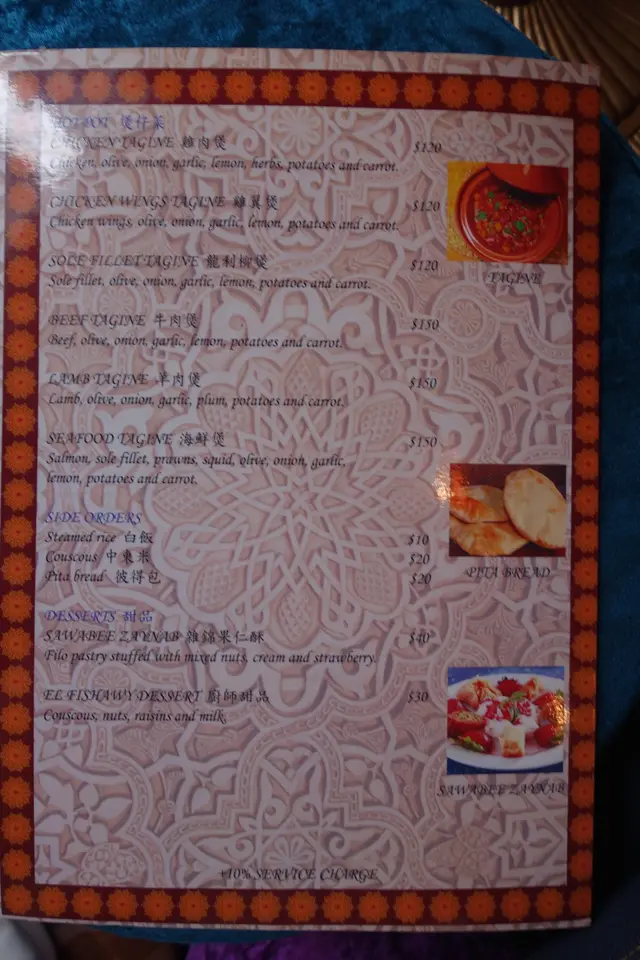 HOT POT 煲仔菜
CHICKEN TAGINE 雞肉煲 $120
Chicken, olive, onion, garlic, lemon, herbs, potatoes and carrot.
CHICKEN WINGS TAGINE 雞翼煲 $120
Chicken wings, olive, onion, garlic, lemon, potatoes and carrot.
SOLE FILLET TAGINE 龍利柳煲 $120
Sole fillet, olive, onion, garlic, lemon, potatoes and carrot.
TAGINE
BEEF TAGINE 牛肉煲 $150
Beef, olive, onion, garlic, lemon, potatoes and carrot.
LAMB TAGINE 羊肉煲 $150
Lamb, olive, onion, garlic, plum, potatoes and carrot.
SEAFOOD TAGINE 海鮮煲 $150
Salmon, sole fillet, prawns, squid, olive, onion, garlic,
lemon, potatoes and carrot.
SIDE ORDERS
Steamed rice 白飯 $10
Couscous 中東米 $20
Pita bread 彼得包 $20
PITA BREAD
DESSERTS 甜品
SAWABEE ZAYNAB 雜錦果仁酥 $40
Filo pastry stuffed with mixed nuts, cream and strawberry.
EL FISHAWY DESSERT 廚師甜品 $30
Couscous, nuts, raisins and milk.
SAWABEE ZAYNAB
+10% SERVICE CHARGE